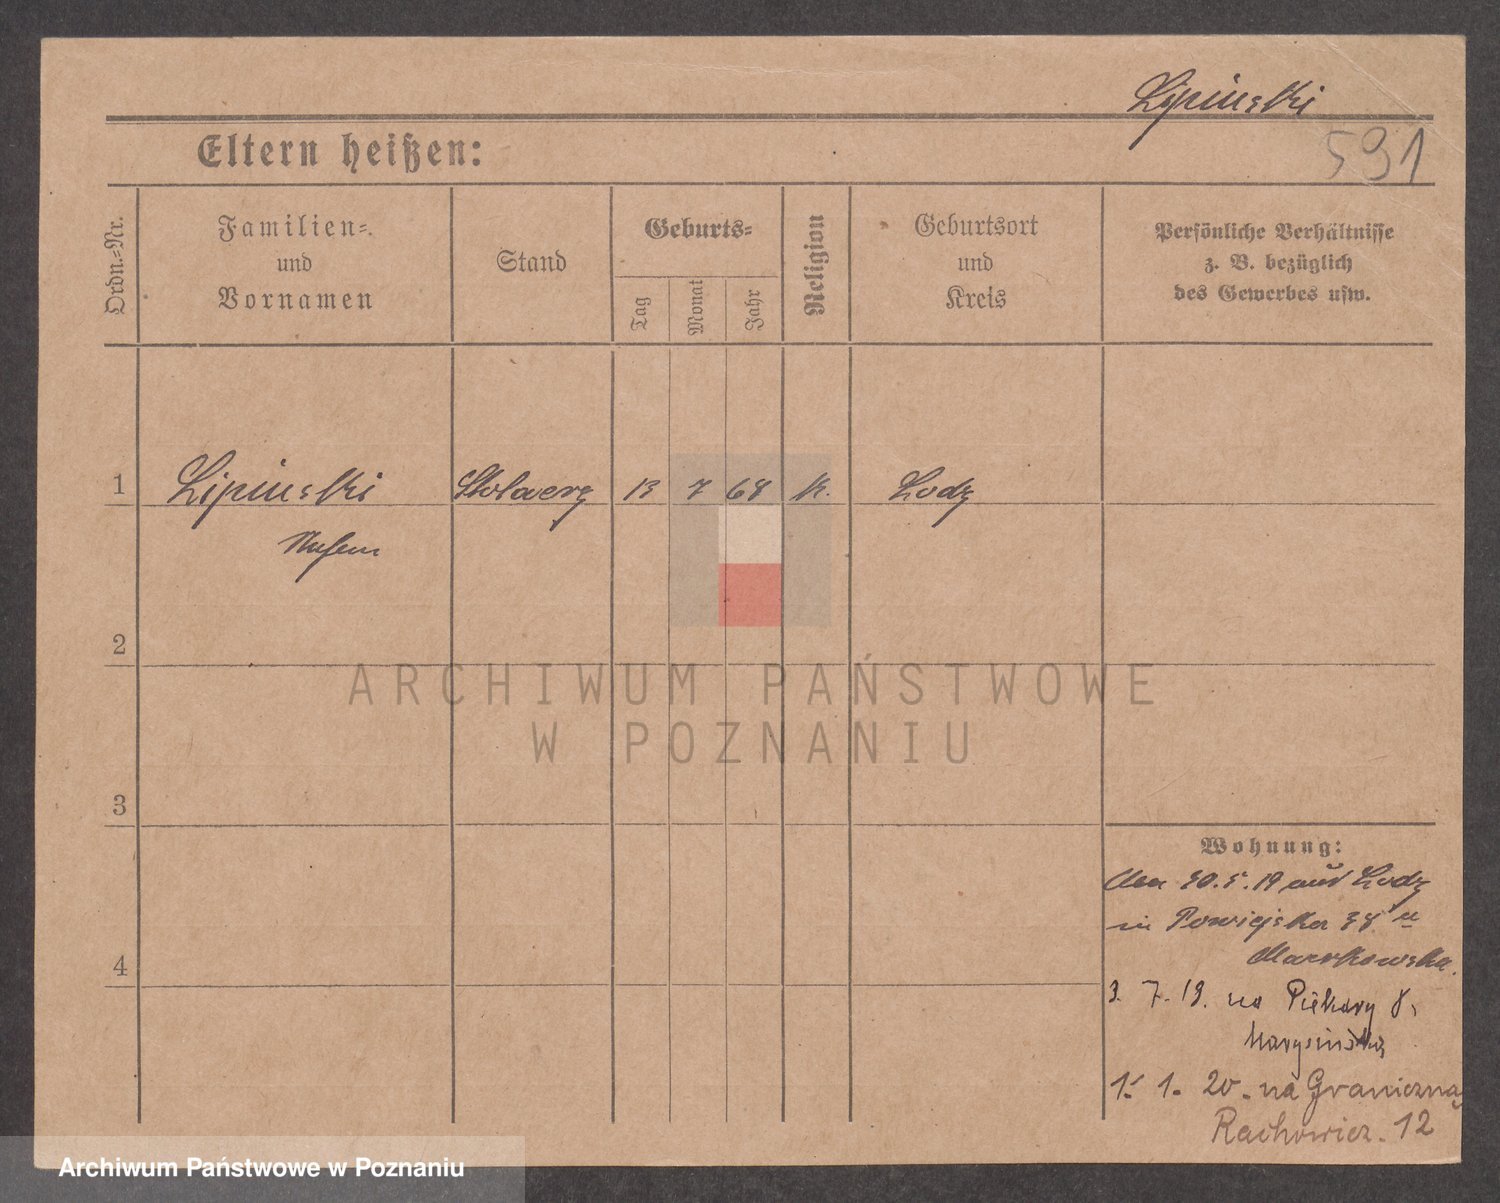 Lipinski
591
Eltern heißen:
Ordn.=Nr.
Familien=
und
Vornamen
Stand
Geburts=
Tag
Monat
Jahr
Religion
Geburtsort
und
Kreis
Persönliche Verhältnisse
z. B. bezüglich
des Gewerbes usw.
1 Lipinski Stolarz 13 7 68 k. Lodz
2
3
4
Wohnung:
30.5.19 aus Lodz
in 38
Markowska.
3. 7. 19. na Piekary 8,
1. 1. 20. na Graniczną
12
ARCHIWUM PAŃSTWOWE
W POZNANIU
Archiwum Państwowe w Poznaniu